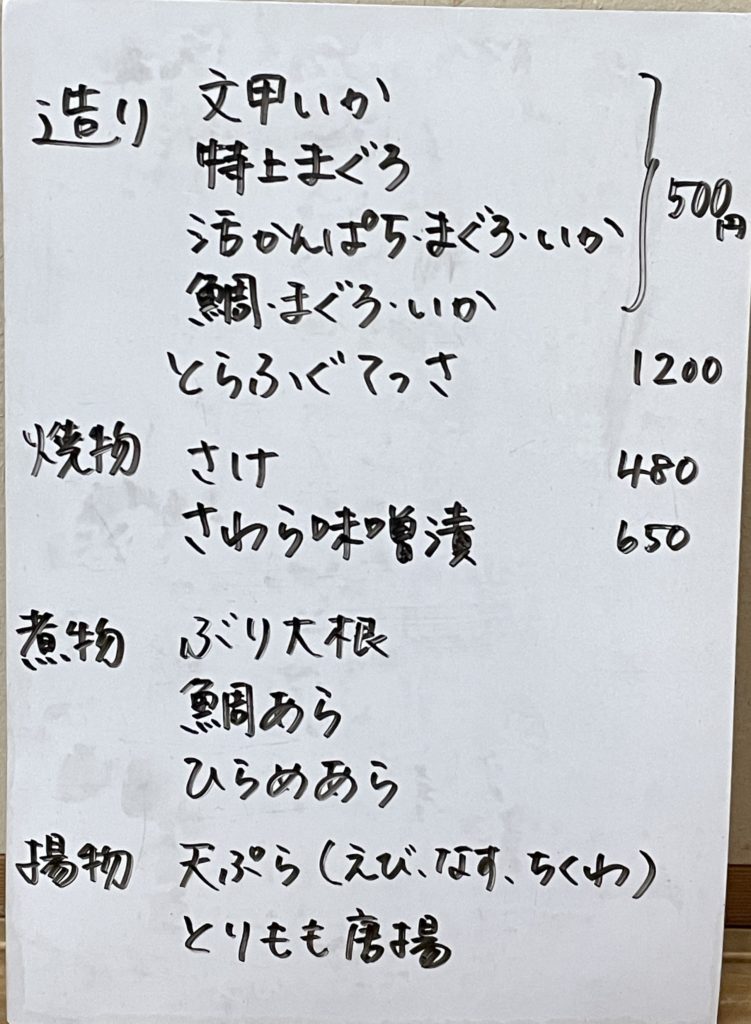 造り 文甲いか
特上まぐろ
活かんぱち・まぐろ・いか
鯛・まぐろ・いか
500円
とらふぐてっさ 1200
焼物 さけ 480
さわら味噌漬 650
煮物 ぶり大根
鯛あら
ひらめあら
揚物 天ぷら(えび、なす、ちくわ)
とりもも唐揚